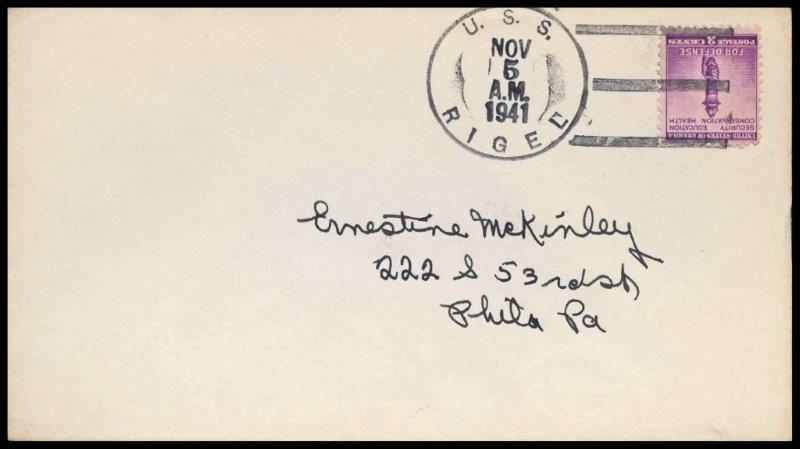 U. S. S.
NOV
5
A.M.
1941
RIGEL
UNITED STATES OF AMERICA
SECURITY EDUCATION
CONSERVATION HEALTH
FOR DEFENSE
POSTAGE 3 CENTS
Ernestine McKinley
222 S 53rd st
Phila Pa